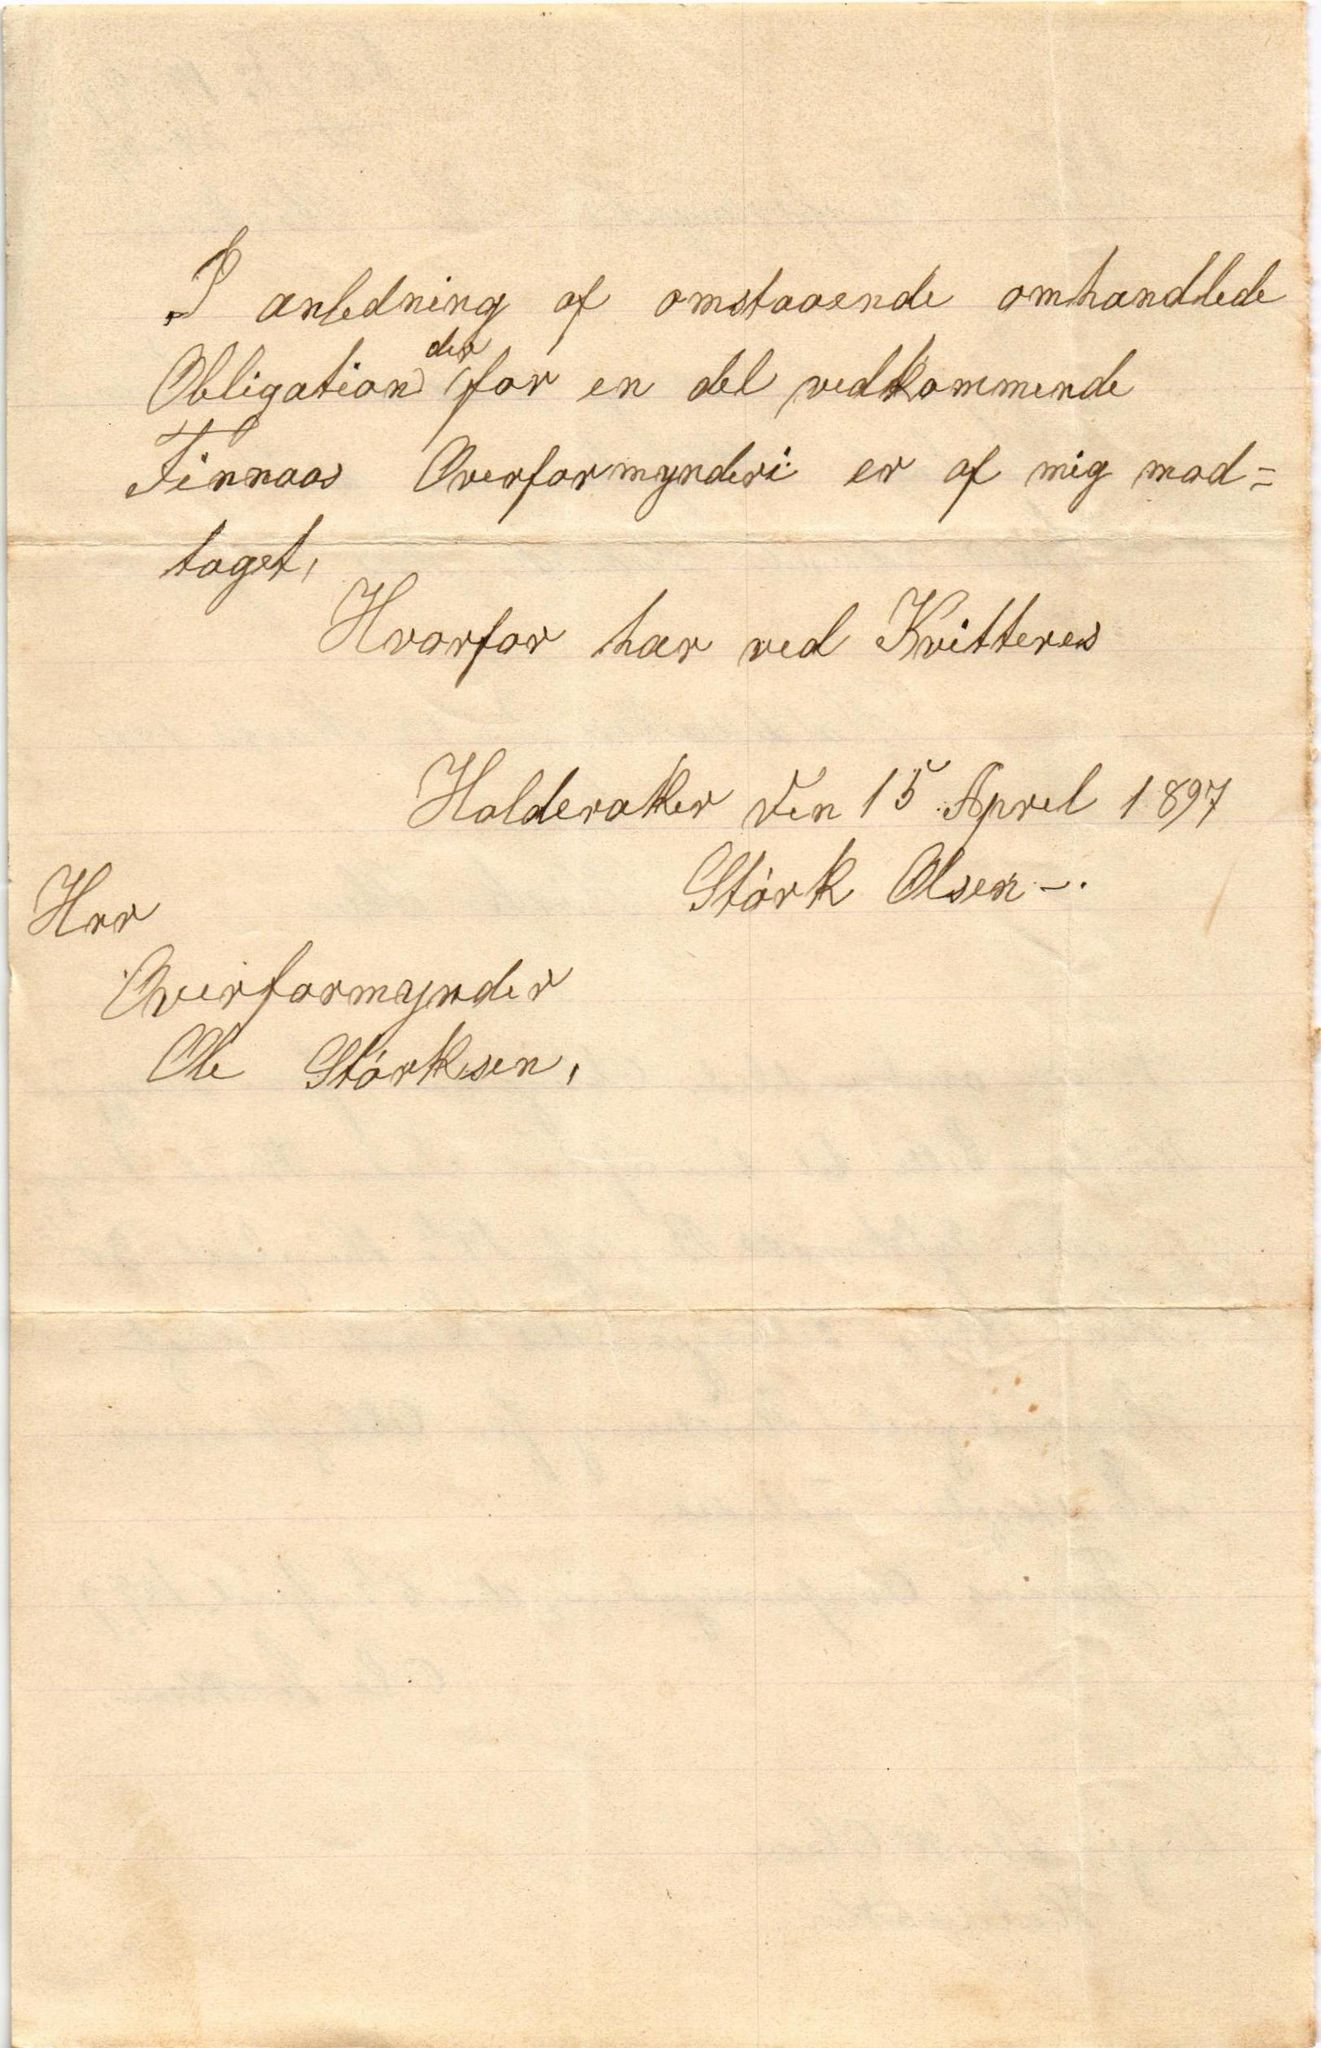 I anledning af omstaaende omhandlede
Obligation der for en del vedkommende
Finnaas Overformynderi er af mig mod=
taget,
Hvorfor her ved Kvitteres
Halderaker den 15 April 1897
Störk Olsen -.
Hrr
Overformynder
Ole Störksen,